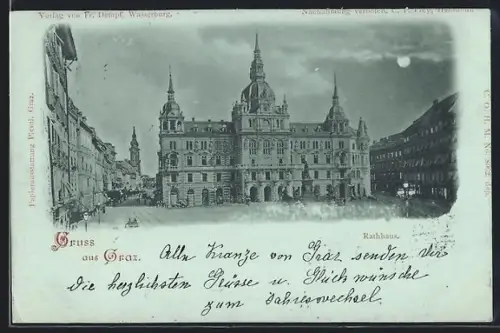 Verlag von Fr. Dempf, Wasserburg.
Nachahmung verboten, C.
Papierausstattung Plentl, Graz.
Rathhaus.
Gruss
aus Graz.
Alle Kranze von Graz senden Dir
die herzlichsten Grüsse u. Glückwünsche
zum Jahreswechsel